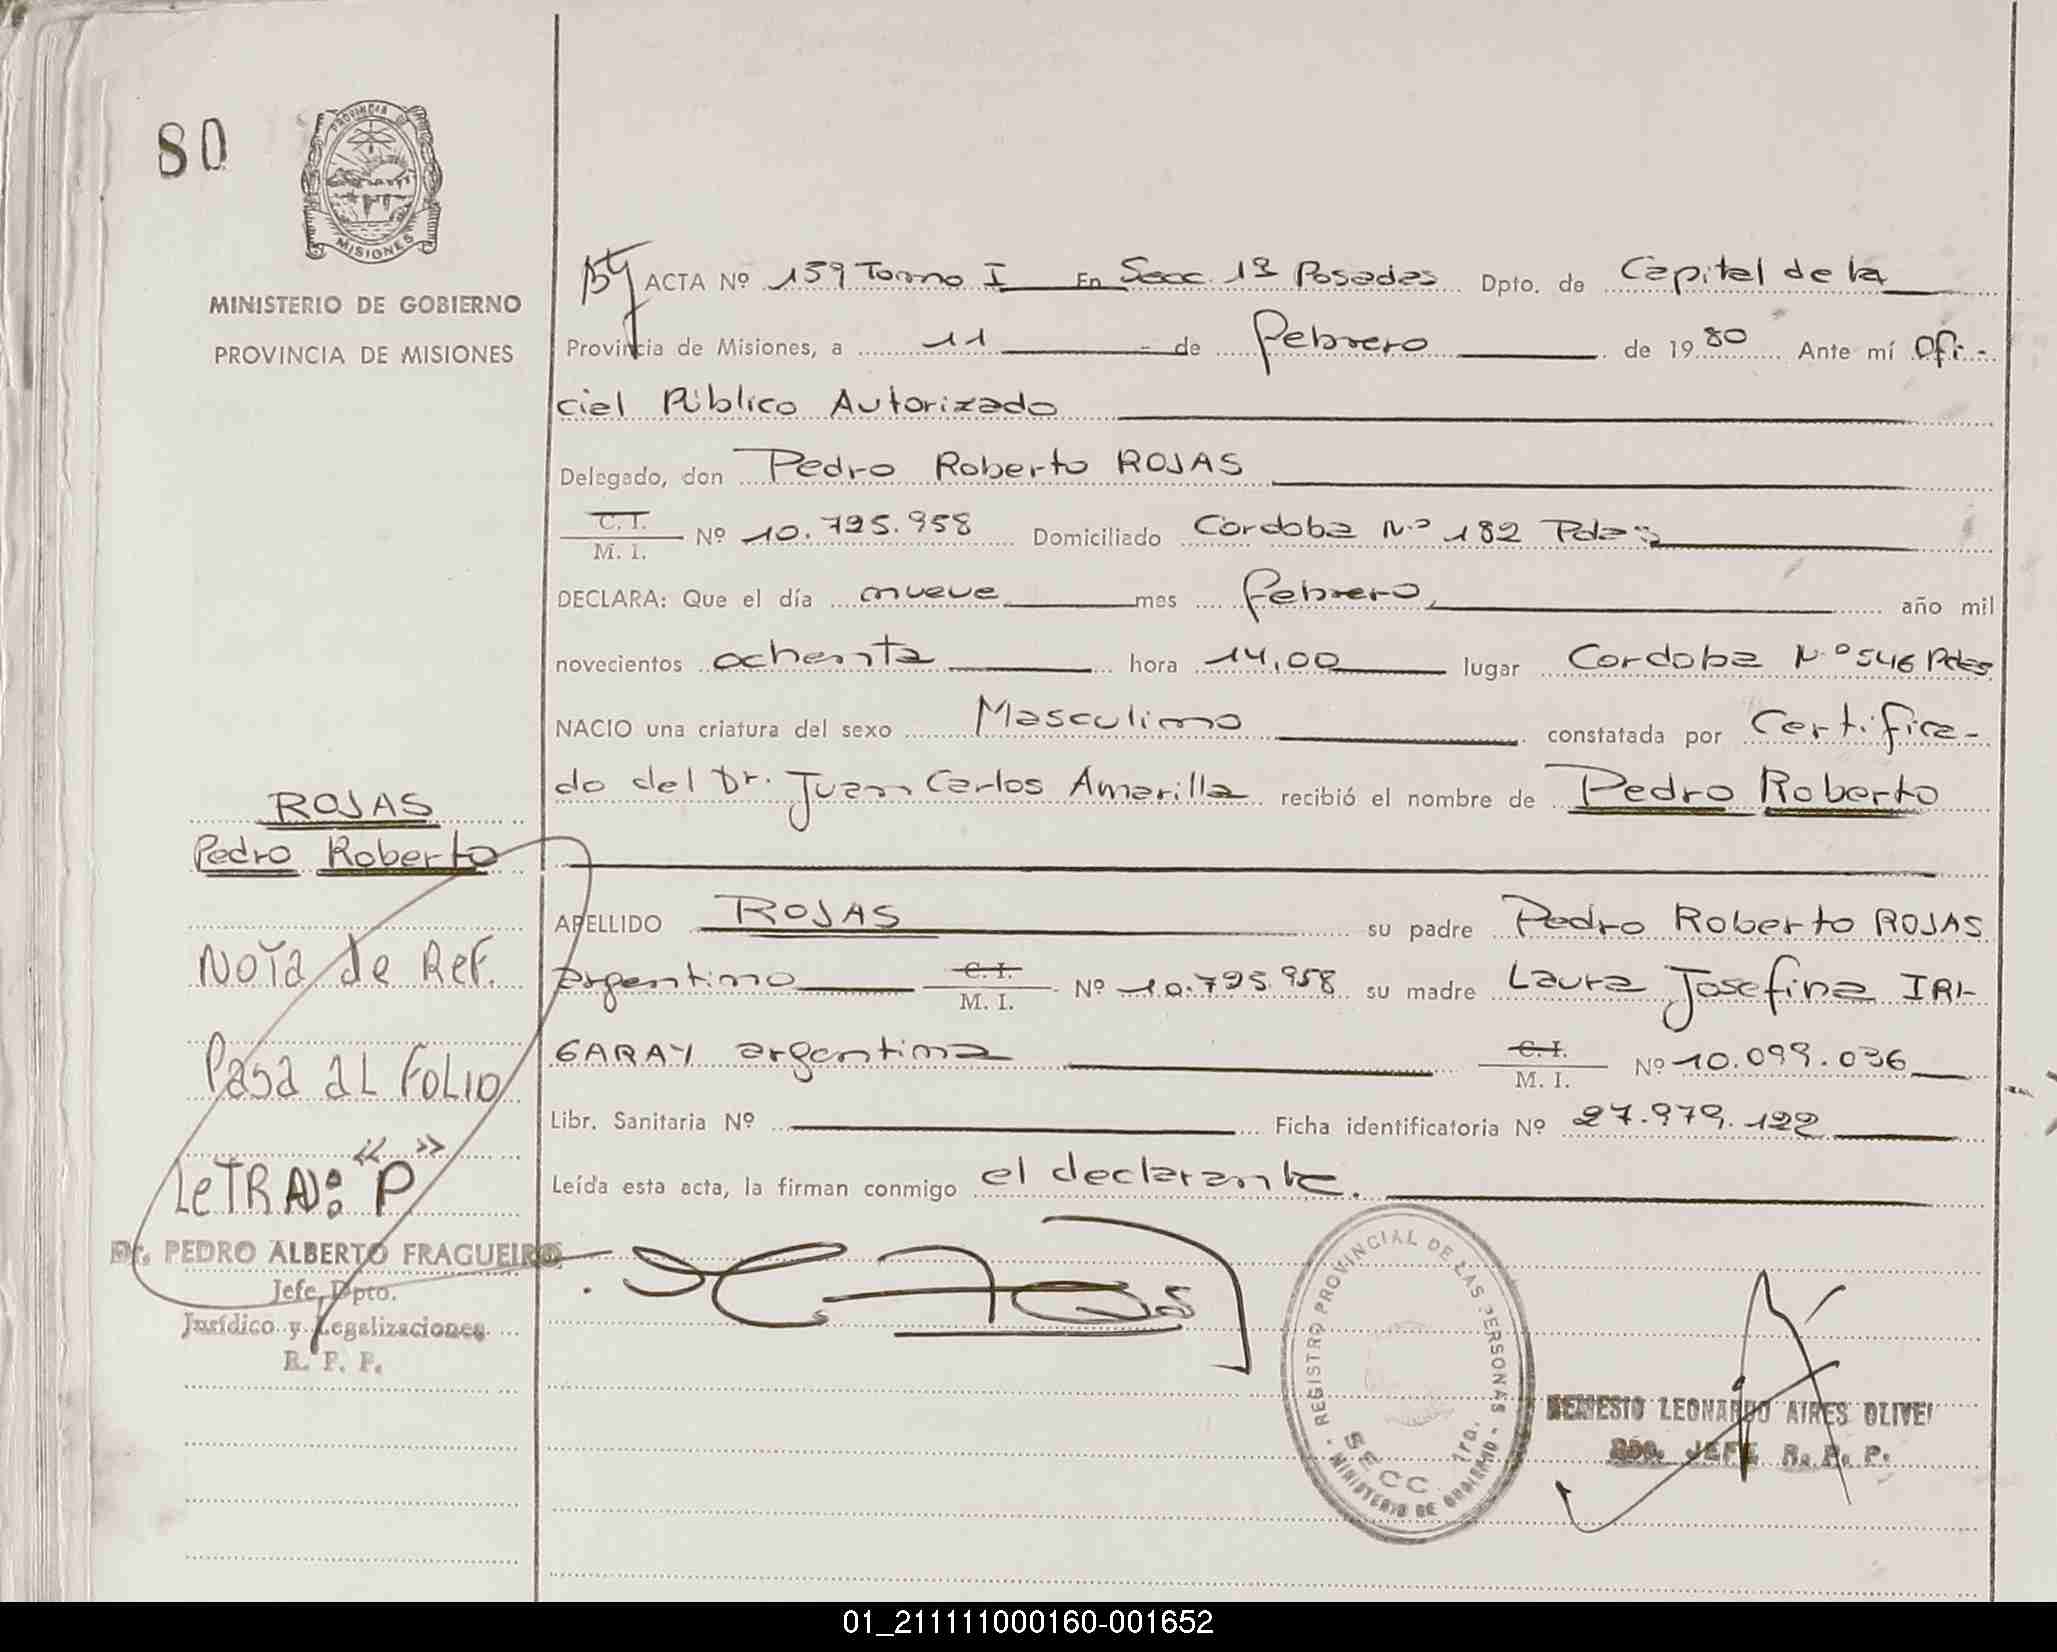 80
PROVINCIA DE
MISIONES
MINISTERIO DE GOBIERNO
PROVINCIA DE MISIONES
ACTA Nº 159 Tomo I En Secc. 1ª Posadas Dpto. de Capital de la
Provincia de Misiones, a 11 de febrero de 1980 Ante mí Ofi-
cial Público Autorizado
Delegado, don Pedro Roberto ROJAS
C. I.
M. I. Nº 10.795.958 Domiciliado Cordoba Nº 182 Pdas
DECLARA: Que el día nueve mes febrero año mil
novecientos ochenta hora 14,00 lugar Cordoba Nº 546 Pdas
NACIO una criatura del sexo Masculino constatada por Certifica-
do del Dr. Juan Carlos Amarilla recibió el nombre de Pedro Roberto
APELLIDO ROJAS su padre Pedro Roberto ROJAS
argentino C. I.
M. I. Nº 10.795.958 su madre Laura Josefina IRI-
GARAY argentina C. I.
M. I. Nº 10.099.036
Libr. Sanitaria Nº Ficha identificatoria Nº 27.979.122
Leída esta acta, la firman conmigo el declarante.
ROJAS
Pedro Roberto
Nota de Ref.
Pasa al Folio
LeTRA: "P"
Dr. PEDRO ALBERTO FRAGUEIRO
Jefe Dpto.
Jurídico y Legalizaciones
R. P. P.
REGISTRO PROVINCIAL DE LAS PERSONAS
SECC. 1ra.
MINISTERIO DE GOBIERNO
NEMESIO LEONARDO AIRES OLIVEI
JEFE R. P. P.
01_211111000160-001652